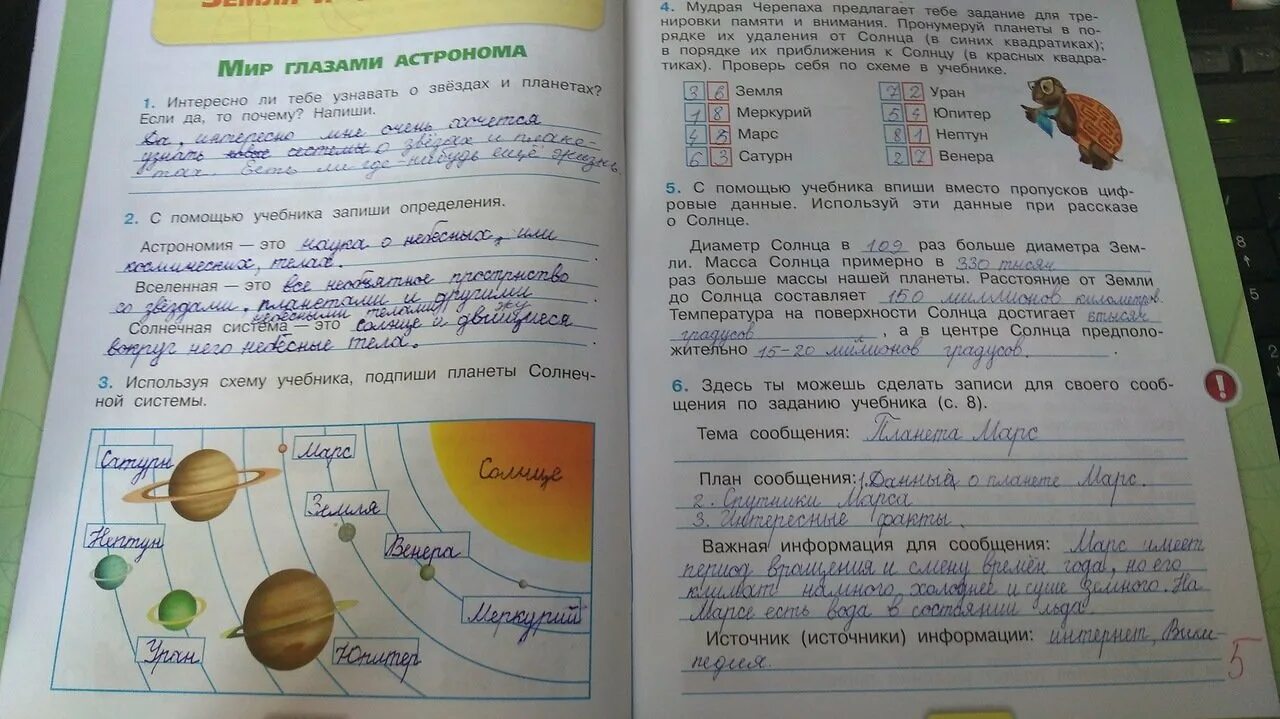 МИР ГЛАЗАМИ АСТРОНОМА
1. Интересно ли тебе узнавать о звёздах и планетах?
Если да, то почему? Напиши.
Да, интересно мне очень хочется
узнать о звёздах и плане-
тах. Есть ли где нибудь ещё жизнь.
2. С помощью учебника запиши определения.
Астрономия — это наука о небесных, или
космических, телах.
Вселенная — это все необъятное прострнство
со звёздами, планетами и другими
небесными телами
Солнечная система — это солнце и движущиеся
вокруг него небесные тела.
3. Используя схему учебника, подпиши планеты Солнеч-
ной системы.
Сатурн
Марс
Солнце
Земля
Нептун
Венера
Меркурий
Уран
Юпитер
4. Мудрая Черепаха предлагает тебе задание для тре-
нировки памяти и внимания. Пронумеруй планеты в по-
рядке их удаления от Солнца (в синих квадратиках);
в порядке их приближения к Солнцу (в красных квадра-
тиках). Проверь себя по схеме в учебнике.
3 6 Земля
7 2 Уран
1 8 Меркурий
5 4 Юпитер
4 5 Марс
8 1 Нептун
6 3 Сатурн
2 7 Венера
5. С помощью учебника впиши вместо пропусков циф-
ровые данные. Используй эти данные при рассказе
о Солнце.
Диаметр Солнца в 109 раз больше диаметра Зем-
ли. Масса Солнца примерно в 330 тысяч
раз больше массы нашей планеты. Расстояние от Земли
до Солнца составляет 150 миллионов километров.
Температура на поверхности Солнца достигает 6тысяч
градусов, а в центре Солнца предполо-
жительно 15-20 милионов градусов.
6. Здесь ты можешь сделать записи для своего сооб-
щения по заданию учебника (с. 8).
Тема сообщения: Планета Марс
План сообщения: 1. Данные о планете Марс.
2. Спутники Марса
3. Интересные факты.
Важная информация для сообщения: Марс имеет
период вращения и смену времён года, но его
климат намного холоднее и суше земного. На
Марсе есть вода в состоянии льда.
Источник (источники) информации: интернет, Вики-
педия.
5